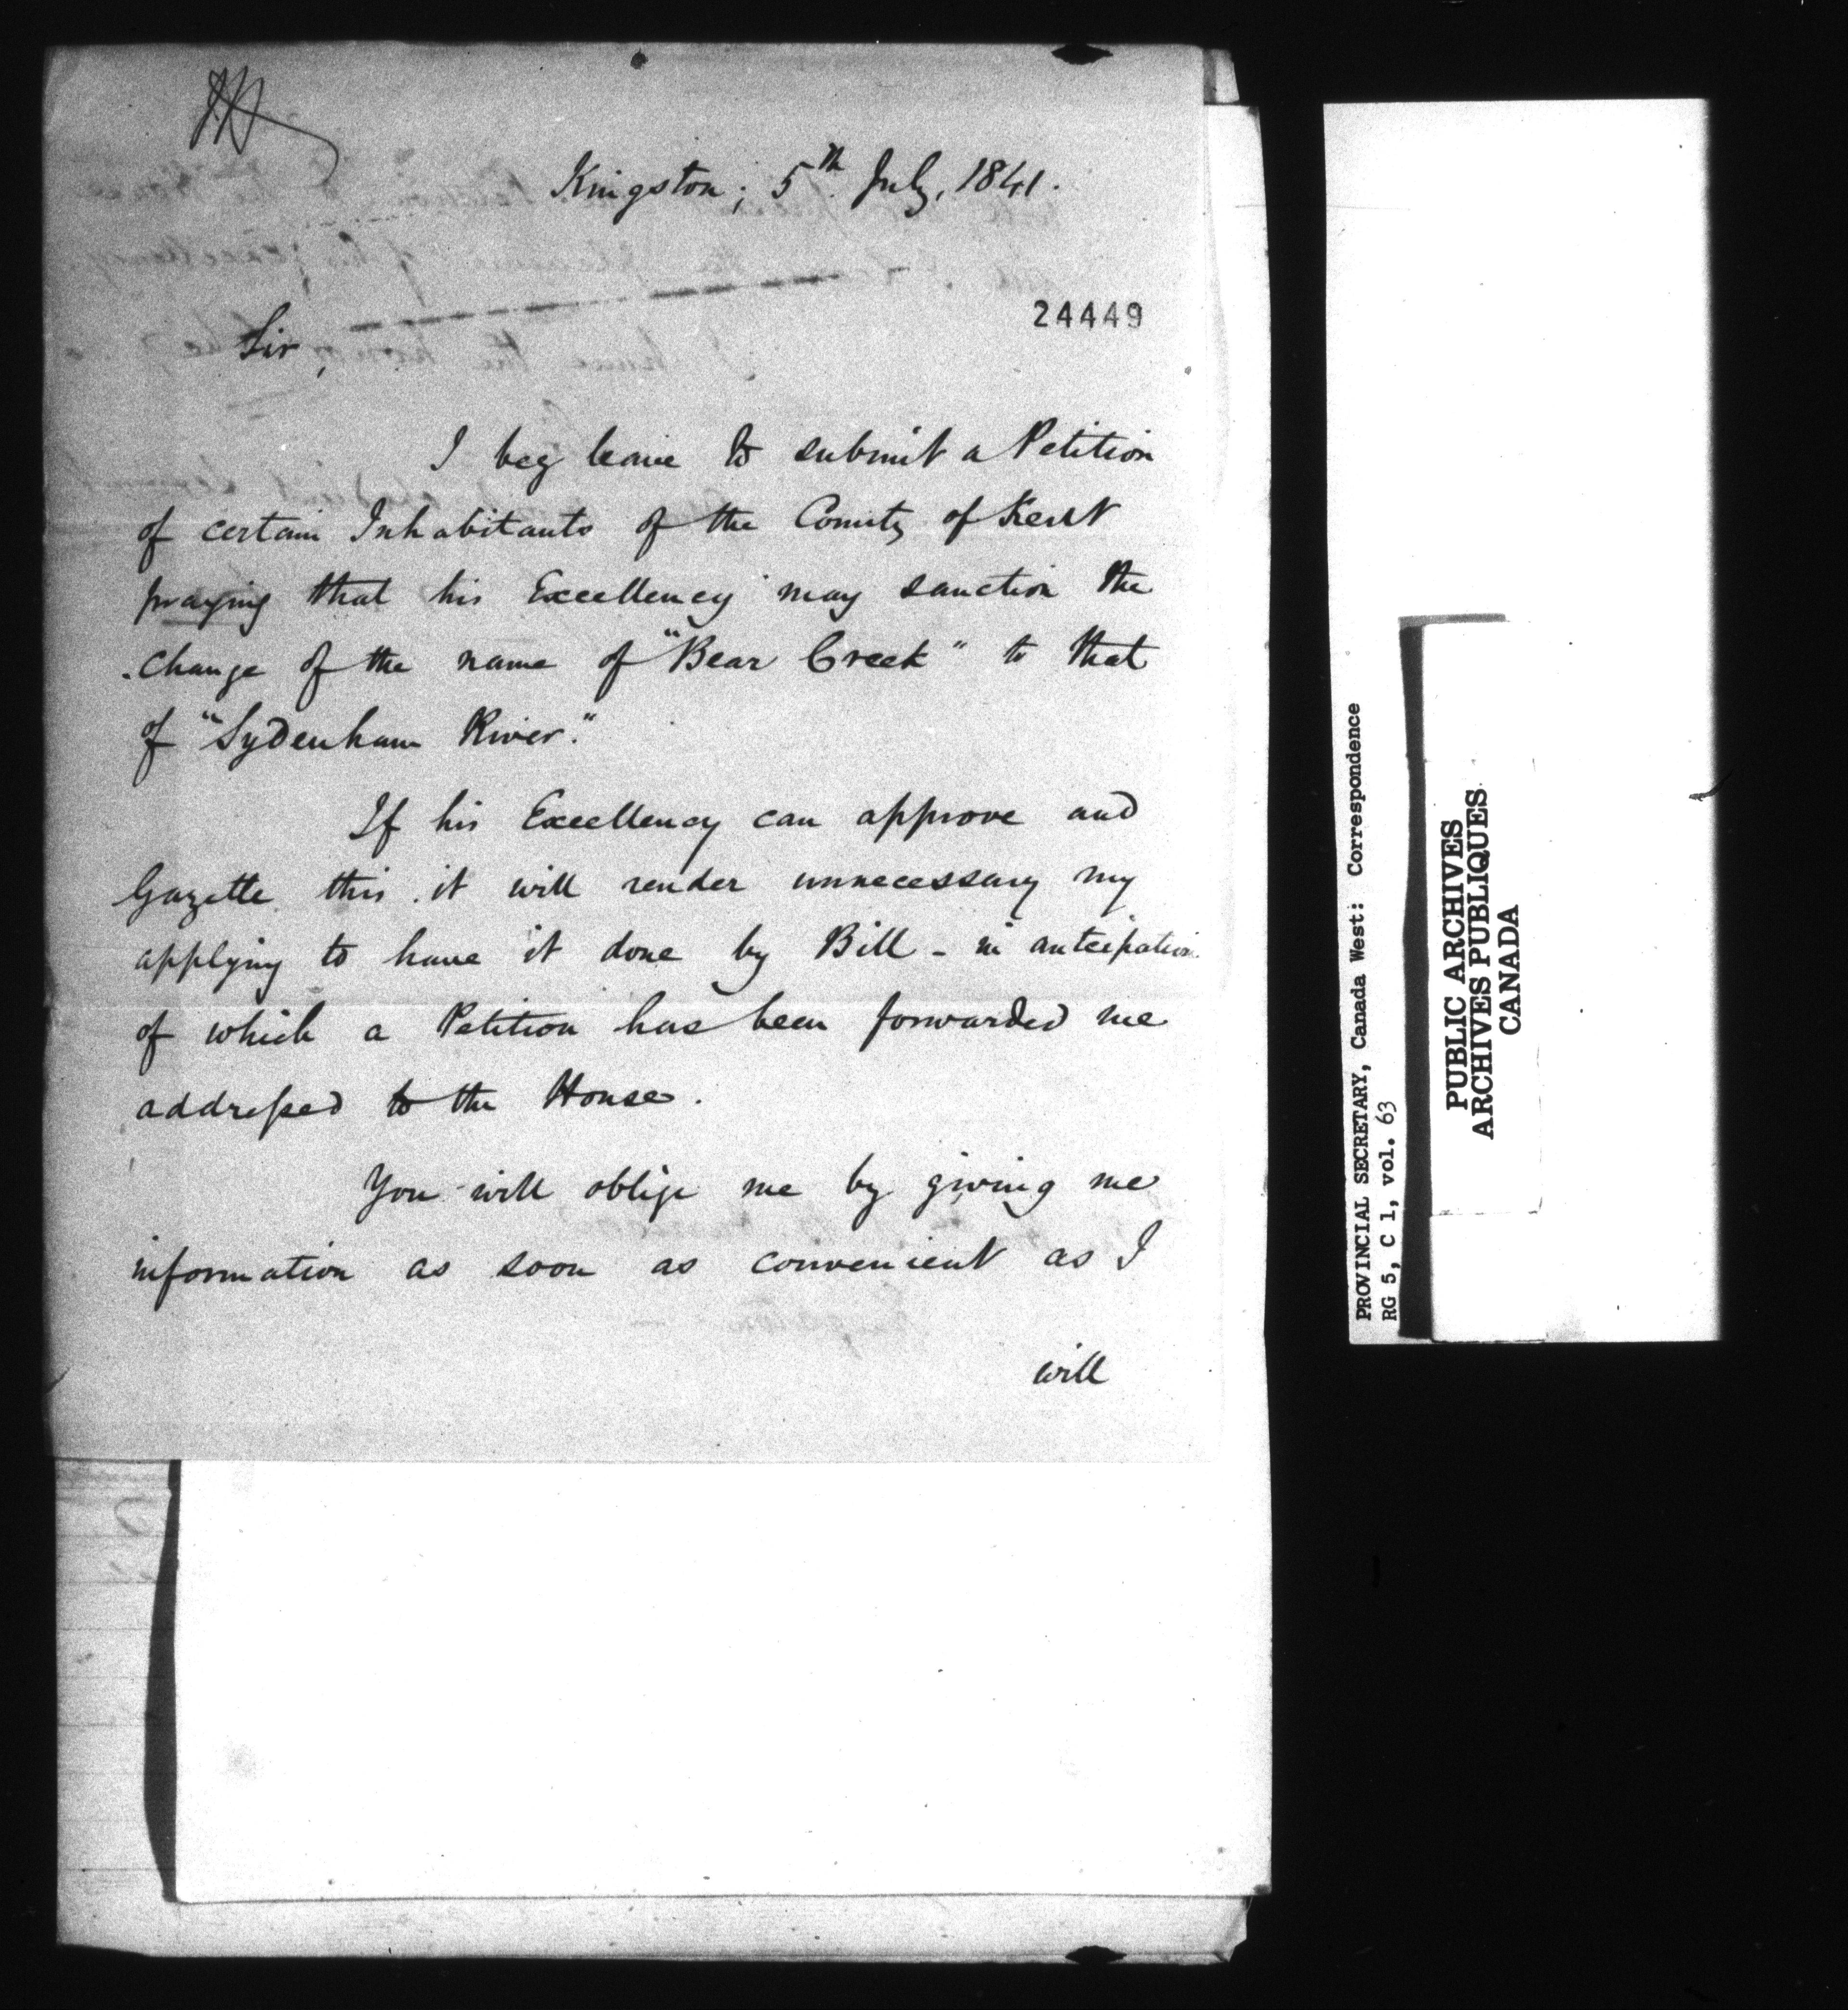 Kingston; 5th July, 1841.
24449
Sir,
I beg leave to submit a Petition
of certain Inhabitants of the County of Kent
praying that his Excellency may sanction the
change of the name of "Bear Creek" to that
of "Sydenham River."
If his Excellency can approve and
Gazette this it will render unnecessary my
applying to have it done by Bill - in anticipation
of which a Petition has been forwarded me
addressed to the House.
You will oblige me by giving me
information as soon as convenient as I
will
PROVINCIAL SECRETARY, Canada West: Correspondence
RG 5, C 1, vol. 63
PUBLIC ARCHIVES
ARCHIVES PUBLIQUES
CANADA